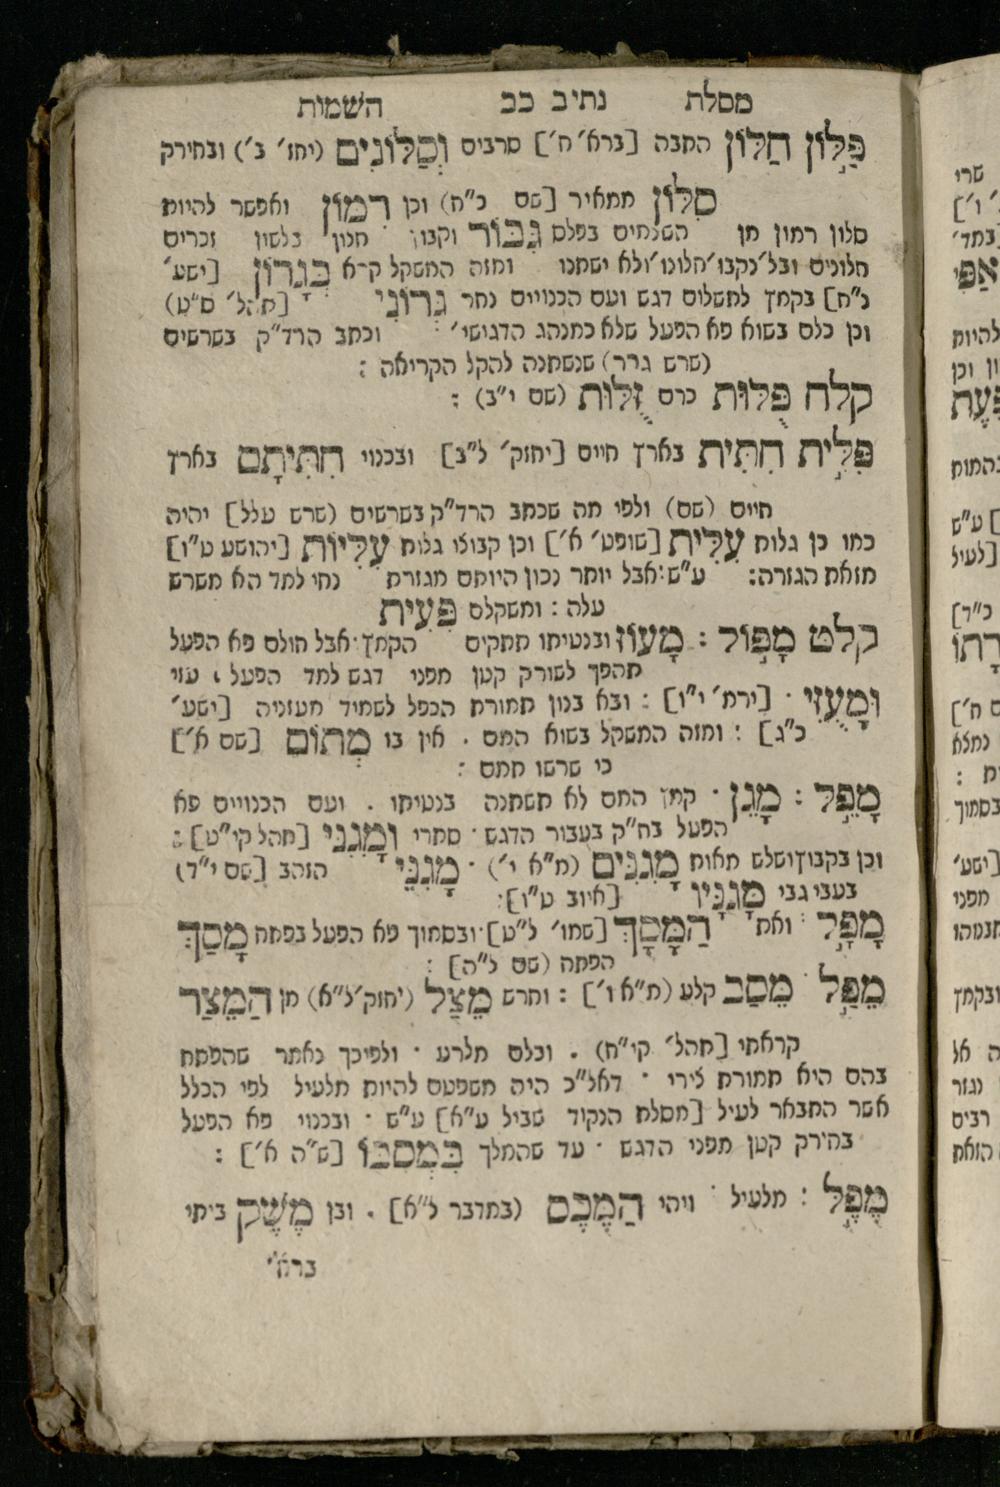 מסלת נתיב כב השמות
פַּלּוֹן חַלּוֹן התבה [ברא׳ ח׳] סרבים וְסַלּוֹנִים (יחז׳ ב׳) ובחירק
סִלּוֹן ממאיר [שם כ״ח) וכן רִמּוֹן ואפשר להיות
סלון רמון מן השלמים בפלס גִּבּוֹר וקבוץ חלון בלשון זכרים
חלונים ובל׳ נקבו׳ חלונו׳ ולא ישתנו ומזה המשקל ק״א בְגָרוֹן [ישע׳
נ״ח] בקמץ לתשלום דגש ועם הכנויים נחר גְּרוֹנִי [תהל׳ ס״ט)
וכן כלם בשוא פא הפעל שלא כמנהג הדגושי׳ וכתב הרד״ק בשרשים
(שרש גרר) שנשתנה להקל הקריאה :
קלח פֻּלּוּת כרם זֻלּוּת (שם י״ב) :
פִּלִּית חִתִּית בארץ חיים [יחזק׳ ל״ב] ובכנוי חִתִּיתָם בארץ
חיים (שם) ולפי מה שכתב הרד״ק בשרשים (שרש עלל] יהיה
כמו כן גלות עִלִּית [שופט׳ א׳] וכן קבוצו גלות עִלִּיּוֹת [יהושע ט״ו]
מזאת הגזרה: ע״ש אבל יותר נכון היותם מגזרת נחי למד הא משרש
עלה : ומשקלם פִּעִית
קלט מָפּוֹל : מָעוֹז ובנטיתו מתקיים הקמץ אבל חולם פא הפעל
תהפך לשורק קטן מפני דגש למד הפעל , עזי
וּמָעֻזִּי [ירמ׳ י״ו] : ובא בנון תמורת הכפל לשמיד מעזניה [ישע׳
כ״ג] : ומזה המשקל בשוא המם . אין בו מְתוֹם [שם א׳]
כי שרשו תמם :
מָפֵל : מָגֵן קמץ המם לא תשתנה בנטיתו . ועם הכנויים פא
הפעל בח״ק בעבור הדגש סתרי וּמָגִנִּי [תהל קי״ט] :
וכן בקבוץ ושלש מאות מָגִנִּים (מ״א י׳) מָגִנֵּי הזהב [שם י״ד)
בעבי גבי מָגִנָּיו [איוב ט״ו]:
מָפָל : ואת הַמָּסָךְ [שמו׳ ל״ט] ובסמוך פא הפעל בפתח מָסַךְ
הפתח (שם ל״ה] :
מֵפַל מֵסַב קלע (מ״א ו׳] : וחרש מֵצַל (יחזק׳ ל״א) מן הַמֵּצַר
קראתי [תהל׳ קי״ח) . וכלם מלרע ולפיכך נאמר שהפתח
בהם היא תמורת צירי דאל״כ היה משפטם להיות מלעיל לפי הכלל
אשר התבאר לעיל [מסלת הנקוד שביל ע״א] ע״ש ובכנוי פא הפעל
בחירק קטן מפני הדגש עד שהמלך בִּמְסִבּוֹ [ש״ה א׳] :
מֶפֶל : מלעיל ויהי הַמֶּכֶס (במדבר ל״א] . ובן מֶשֶׁק ביתי